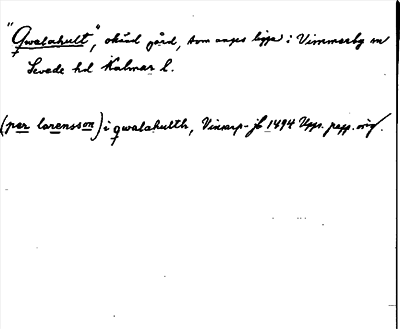 "Qwalahult", okänd gård, som anges ligga i Vimmerby sn
Sevede hd Kalmar l.
(per larensson) i qwalahulth, Vinsarp- jb 1494 Upps. papp. orig.